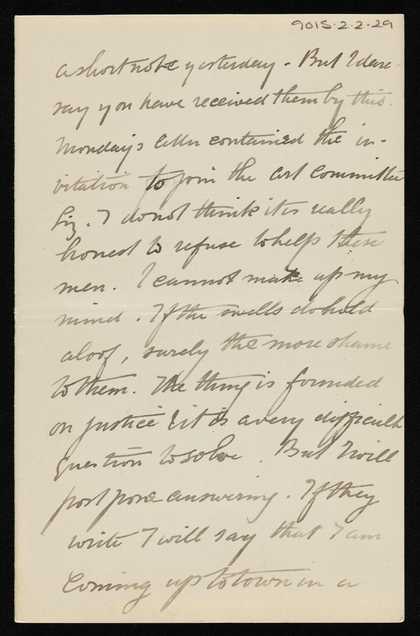 9015-2-2-29
a short note yesterday - But I dare
say you have received them by this.
Monday's letter contained the in-
vitation to join the art committee
Liz. I do not think it is really
honest to refuse to help these
men. I cannot make up my
mind. If the swells do hold
aloof, surely the more shame
to them. The thing is founded
on justice & it is a very difficult
question to solve. But I will
postpone answering. If they
write I will say that I am
coming up to town in a